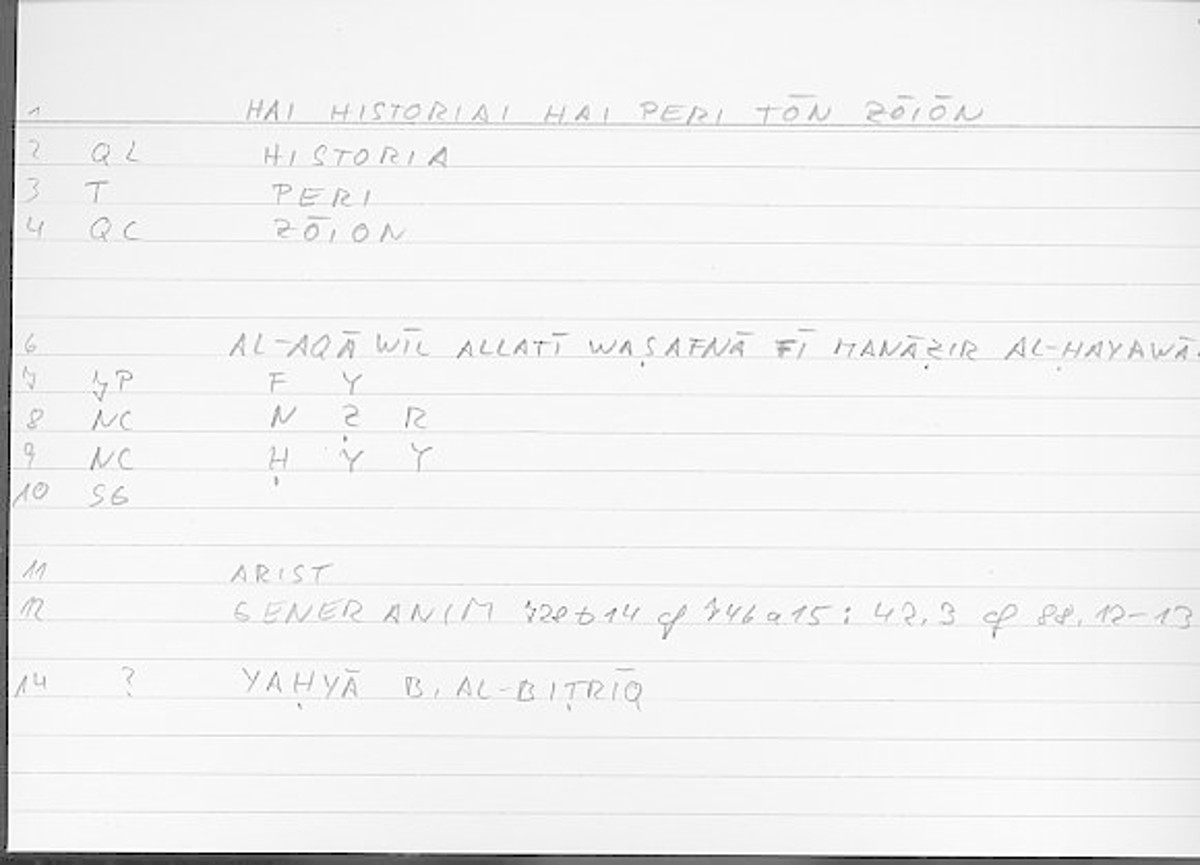 1 HAI HISTORIAI HAI PERI TŌN ZŌIŌN
2 QL HISTORIA
3 T PERI
4 QC ZŌION
6 AL-AQĀWĪL ALLATĪ WAṢAFNĀ FĪ MANĀẒIR AL-ḤAYAWĀ
7 JP F Y
8 NC N Ẓ R
9 NC Ḥ Y Y
10 SG
11 ARIST
12 GENER ANIM 728b14 cf 746a15: 42.3 cf 88.12-13
14 ? YAḤYĀ B. AL-BIṬRĪQ